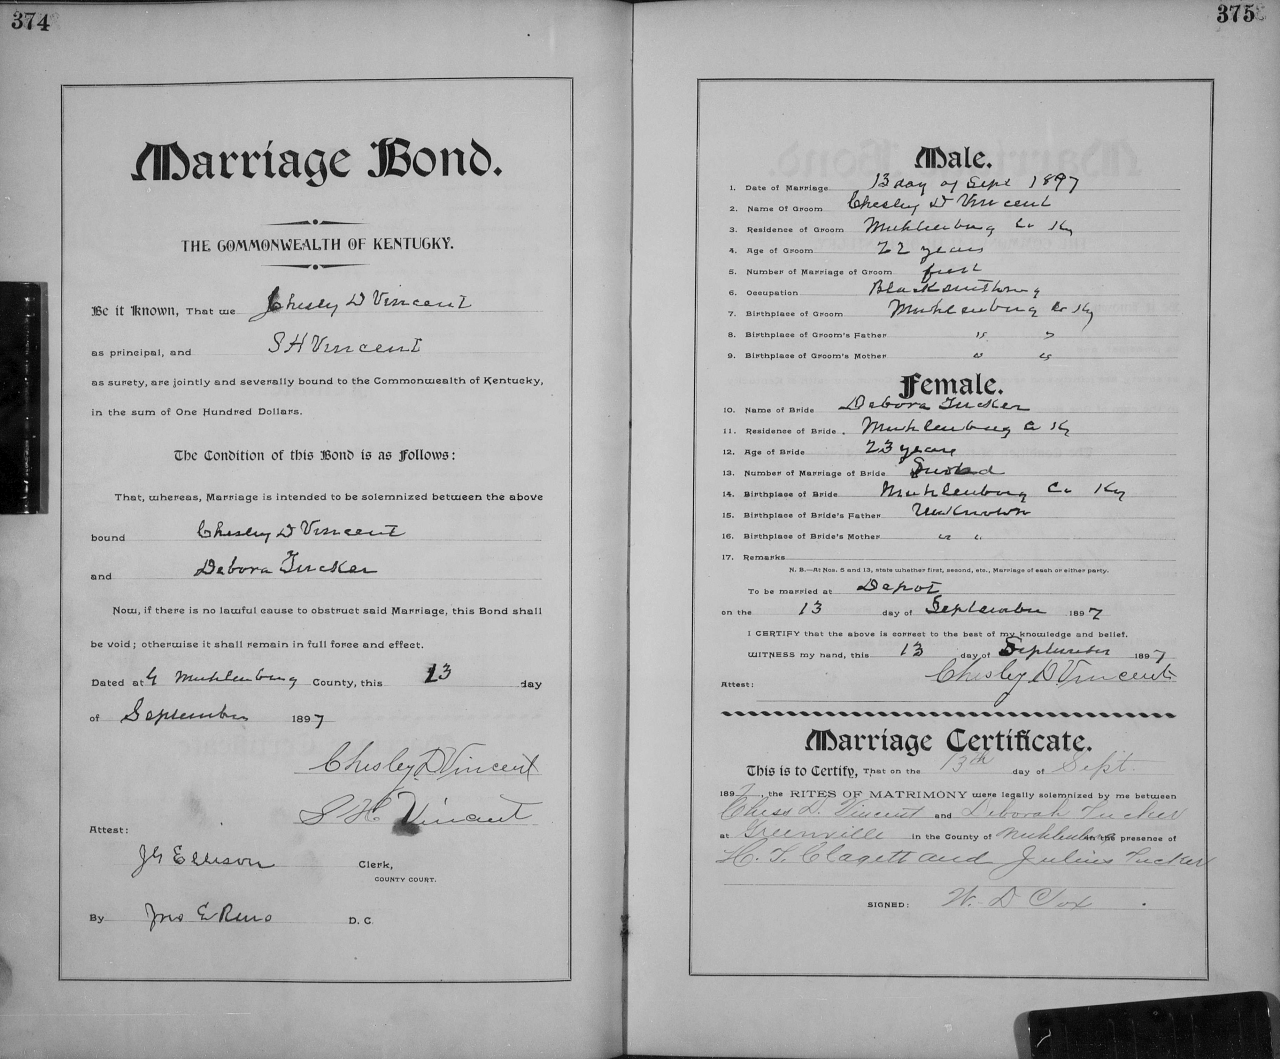 374
Marriage Bond.
THE COMMONWEALTH OF KENTUCKY.
Be it Known, That we Chesley D Vincent
as principal, and S H Vincent
as surety, are jointly and severally bound to the Commonwealth of Kentucky,
in the sum of One Hundred Dollars.
The Condition of this Bond is as Follows:
That, whereas, Marriage is intended to be solemnized between the above
bound Chesley D Vincent
and Debora Tucker
Now, if there is no lawful cause to obstruct said Marriage, this Bond shall
be void; otherwise it shall remain in full force and effect.
Dated at G Muhlenburg County, this 13 day
of September 1897
Chesley D Vincent
S H Vincent
Attest:
J G Ellison Clerk,
COUNTY COURT.
By Jno E Reno D. C.
375
Male.
1. Date of Marriage 13 day of Sept 1897
2. Name Of Groom Chesley D Vincent
3. Residence of Groom Muhlenburg Co Ky
4. Age of Groom 22 years
5. Number of Marriage of Groom first
6. Occupation Blacksmithing
7. Birthplace of Groom Muhlenburg Co Ky
8. Birthplace of Groom's Father " "
9. Birthplace of Groom's Mother " "
Female.
10. Name of Bride Debora Tucker
11. Residence of Bride Muhlenburg Co Ky
12. Age of Bride 23 years
13. Number of Marriage of Bride
14. Birthplace of Bride Muhlenburg Co Ky
15. Birthplace of Bride's Father Unknown
16. Birthplace of Bride's Mother " "
17. Remarks
N. B.—At Nos. 5 and 13, state whether first, second, etc., Marriage of each or either party.
To be married at Depot
on the 13 day of September 1897
I CERTIFY that the above is correct to the best of my knowledge and belief.
WITNESS my hand, this 13 day of September 1897
Chesley D Vincent
Attest:
Marriage Certificate.
This is to Certify, That on the 13th day of Sept.
1897, the RITES OF MATRIMONY were legally solemnized by me between
Chess D. Vincent and Deborah Tucker
at Greenville in the County of Muhlenburg in the presence of
H. T. Clagett and Julius Tucker
SIGNED: W. D Cox